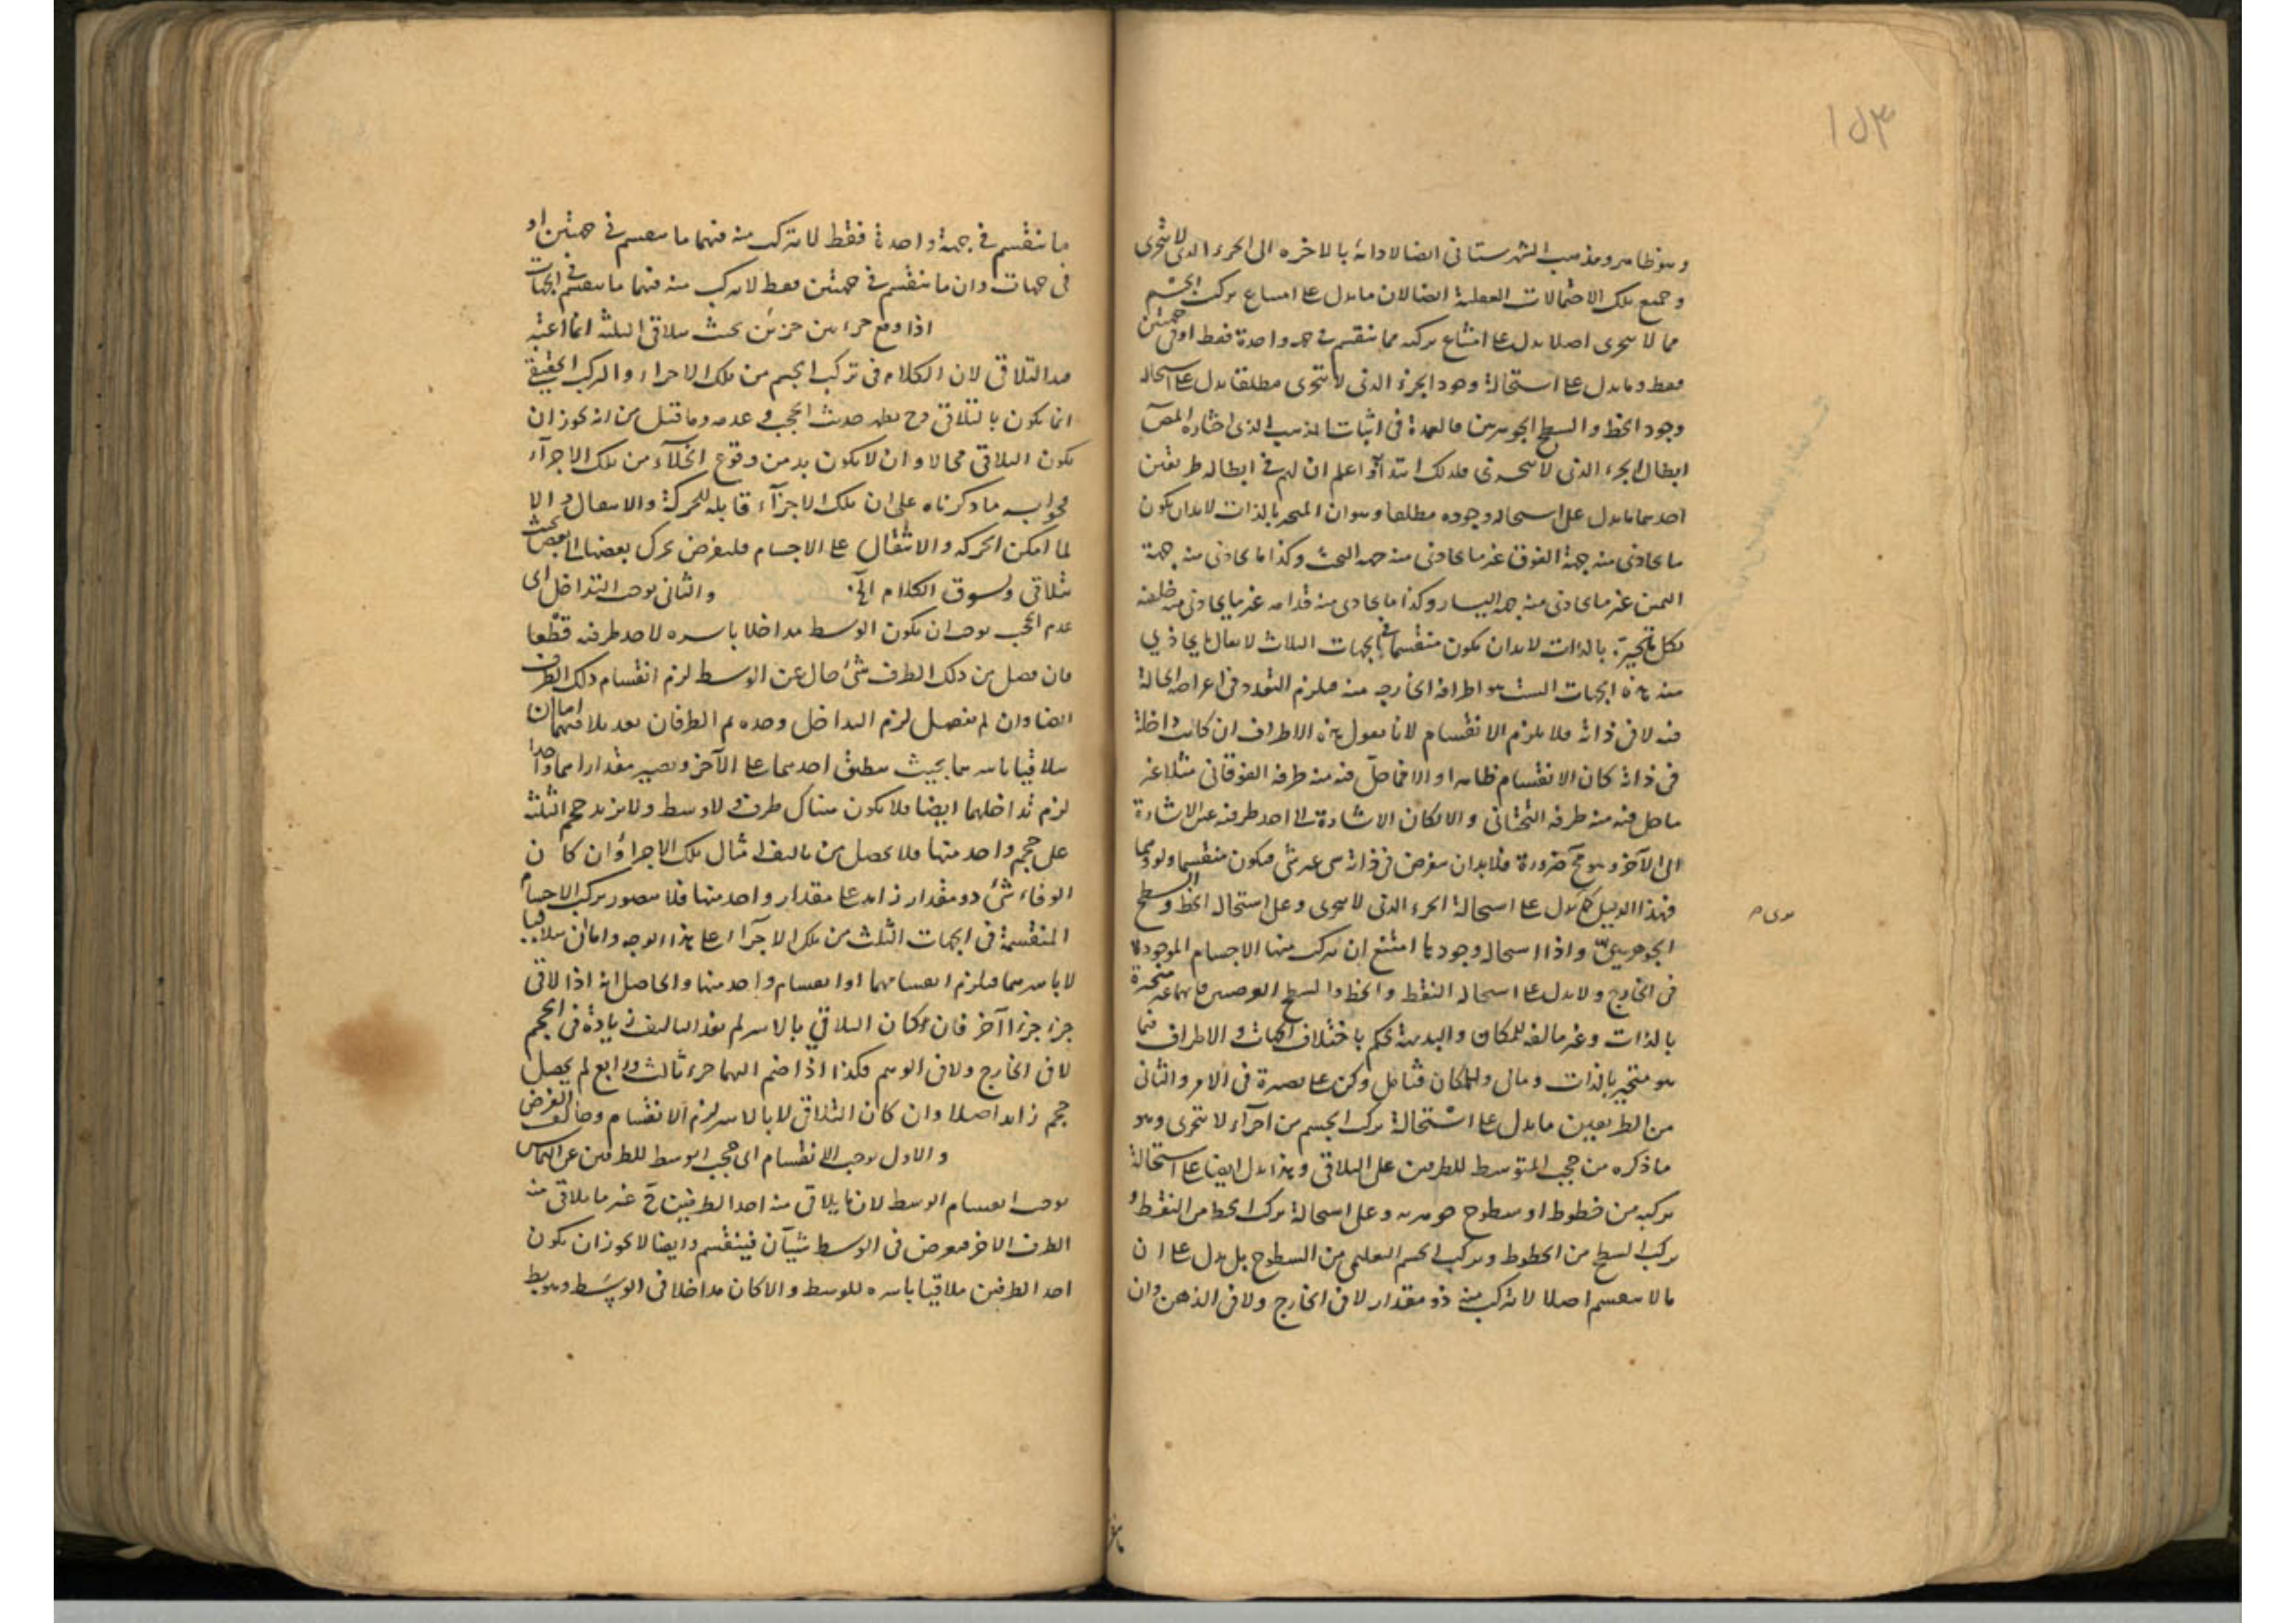 ١٥٣
وهو ظاهر ومذهب الشهرستانى ايضا لادائه بالاخره الى الجزء الذى لا يتجزى
وجميع تلك الاحتمالات العقلية ايضا لان ما يدل على امتناع تركب الجسم
مما لا يتجزى اصلا يدل على امتناع تركبه مما ينقسم فى جهة واحدة فقط او فى جهتين
فقط وما يدل على استحالة وجود الجزء الذى لا يتجزى مطلقا يدل على استحالة
وجود الخط والسطح الجوهرين فالعمدة فى اثبات المذهب الذى اختاره المص
ابطال الجزء الذى لا يتجزى فلذلك ابتدأ به اعلم ان لهم فى ابطاله طريقين
احدهما ما يدل على استحالة وجوده مطلقا وهو ان المتحيز بالذات لابد ان يكون
ما يحاذى منه جهة الفوق غير ما يحاذى منه جهة التحت وكذا ما يحاذى منه جهة
اليمين غير ما يحاذى منه جهة اليسار وكذا ما يحاذى منه قدامه غير ما يحاذى منه خلفه
فكل متحيز بالذات لابد ان يكون منقسما فى الجهات الثلاث لا يقال ما يحاذى
منه هذه الجهات الست هو اطرافه الخارجه عنه فيلزم التعدد فى اعراضه الحالة
فيه لا فى ذاته فلا يلزم الانقسام لانا نقول هذه الاطراف ان كانت داخلة
فى ذاته كان الانقسام ظاهرا والا فما حل فيه منه طرفه الفوقانى مثلا غير
ما حل فيه منه طرفه التحتانى والا لكان الاشارة الى احد طرفيه عين الاشارة
الى الآخر وهو مح ضرورة فلابد ان يفرض فى ذاته شئ غير شئ فيكون منقسما ولو وهما
فهذا الدليل كما يدل على استحالة الجزء الذى لا يتجزى وعلى استحالة الخط والسطح
الجوهريين واذا استحال وجودها امتنع ان يتركب منها الاجسام الموجودة
فى الخارج ولا يدل على استحالة النقط والخط والسطح العرضيين فانها غير متحيزة
بالذات وغير مالئه للمكان والبديهة تحكم باختلاف الجهات والاطراف فيما
هو متحيز بالذات ومالئ للمكان فتامل وكن على بصيرة فى الامر والثانى
من الطريقين ما يدل على استحالة تركب الجسم من اجزاء لا تتجزى وهو
ما ذكره من حجب المتوسط للطرفين على التلاقى وهذا يدل ايضا على استحالة
تركبه من خطوط او سطوح جوهرية وعلى استحالة تركب الخط من النقط و
تركب السطح من الخطوط وتركب الجسم التعليمى من السطوح بل يدل على ان
ما لا ينقسم اصلا لا يتركب منه ذو مقدار لا فى الخارج ولا فى الذهن وان
ما ينقسم فى جهة واحدة فقط لا يتركب منه فيهما ما ينقسم فى جهتين او
فى جهات وان ما ينقسم فى جهتين فقط لا يتركب منه فيهما ما ينقسم فى الجهات
اذا وقع جزء بين جزئين بحيث يتلاقى الثلثة انما اعتبر
قيد التلاقى لان الكلام فى تركب الجسم من تلك الاجزاء والتركب الحقيقى
انما يكون بالتلاقى وح يظهر حديث الحجب وعدمه وما قيل من انه يجوز ان
يكون التلاقى محالا وان لا يكون بد من وقوع الخلآء من تلك الاجزآء
فجوابه ما ذكرناه على ان تلك الاجزآء قابلة للحركة والانتقال والا
لما امكن الحركة والانتقال على الاجسام فليفرض تحرك بعضها الى بعض بحيث
تتلاقى ونسوق الكلام الخ والثانى يوجب التداخل اى
عدم الحجب يوجب ان يكون الوسط مداخلا باسره لاحد طرفيه قطعا
فان فصل من ذلك الطرف شئ خال عن الوسط لزم انقسام ذلك الطرف
ايضا وان لم يفصل لزم التداخل وحده ثم الطرفان بعد تلاقيهما اما ان
يتلاقيا باسرهما بحيث ينطبق احدهما على الآخر ويصير مقدارهما واحدا
لزم تداخلهما ايضا فلا يكون هناك طرف ولا وسط ولا يزيد حجم الثلثة
على حجم واحد منها فلا يحصل من تاليف امثال تلك الاجزاء وان كان
الوفا شئ ذو مقدار زايد على مقدار واحد منها فلا يتصور تركب الاجسام
المنقسمة فى الجهات الثلث من تلك الاجزآء على هذا الوجه واما ان يتلاقيا
لا باسرهما فيلزم انقسامهما او انقسام واحد منهما والحاصل انه اذا لاقى
جزء جزءا آخر فان كان التلاقى بالاسر لم يفد التاليف زيادة فى الحجم
لا فى الخارج ولا فى الوهم فكذا اذا ضم اليهما جزء ثالث ورابع لم يحصل
حجم زايد اصلا وان كان التلاقى لا بالاسر لزم الانقسام وخالف الفرض
والاول يوجب الانقسام اى حجب الوسط للطرفين عن التماس
يوجب انقسام الوسط لان ما يلاقى منه احد الطرفين ح غير ما يلاقى منه
الطرف الاخر فيفرض فى الوسط شيآن فينقسم وايضا لا يجوز ان يكون
احد الطرفين ملاقيا باسره للوسط والا كان مداخلا فى الوسط وهو بط